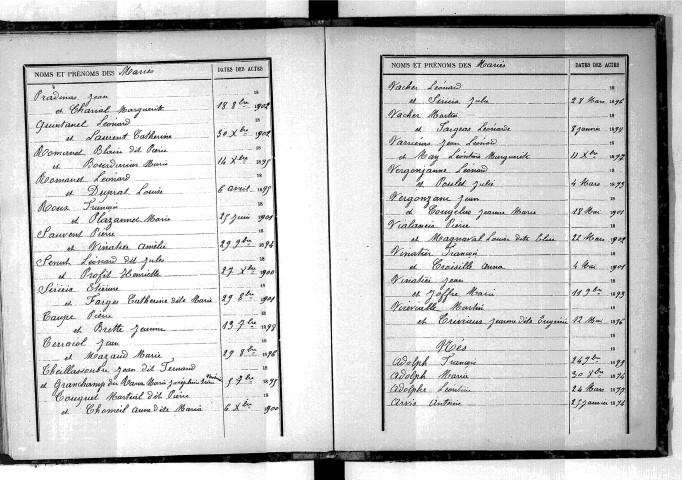 NOMS ET PRÉNOMS DES Mariés DATES DES ACTES
Pradinas Jean
et Chariol Marguerite 18 8bre 1902
Quintanel Léonard
et Laurent Catherine 30 Xbre 1902
Romanet Blain dit Pierre
et Bourdarias Marie 14 Xbre 1895
Romanet Léonard
et Duprat Louise 6 avril 1895
Roux François
et Plazannet Marie 25 juin 1901
Sauvent Pierre
et Vinatier Amélie 29 9bre 1894
Senut Léonard dit Jules
et Profit Henriette 27 Xbre 1900
Sirieix Etienne
et Farges Catherine dite Marie 29 8bre 1901
Taupe Pierre
et Brette Jeanne 13 7bre 1898
Terraciol Jean
et Mazaud Marie 29 8bre 1896
Theillassoubre Jean dit Fernand
et Granchamp du Marie Joséphine 5 9bre 1895
Touquet Martial dit Pierre
et Chomeil Anne dite Maria 6 Xbre 1900
NOMS ET PRÉNOMS DES Mariés DATES DES ACTES
Vacher Léonard
et Julie 28 Mars 1896
Vacher Martin
et Fargeas Léonarde 8 janvier
Jean Léonard
et Nay Léontine Marguerite 11 Xbre 1897
Vergonzanne Léonard
et Poulet Julie 4 Mars 1893
Vergonzane Jean
et Jeanne Marie 18 Mai 1901
Vialaneix Pierre
et Magnaval Louise dite Elise 22 Mars 1902
Vinatier François
et Croisille Anna 4 Mai 1901
Vinatier Jean
et Joffre Marie 11 9bre 1893
Martin
et Jeanne dite Eugénie 12 Mai 1896
Nés
Adolph François 24 9bre
Adolph Maria 30 8bre 1874
Adolphe Léontine 24 Mars 1877
Arvis Antoine 25 janvier 1874